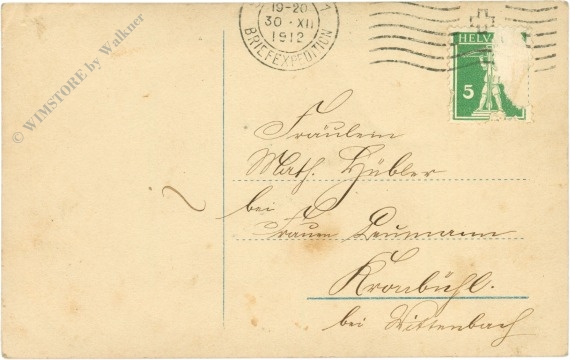 19-20
30·XII
1912
BRIEFEXPEDITION
HELV
5
© WIMSTORE by Walkner
Fräulein
Math. Hübler
bei
Frau Neumann
Kronbühl.
bei Wittenbach